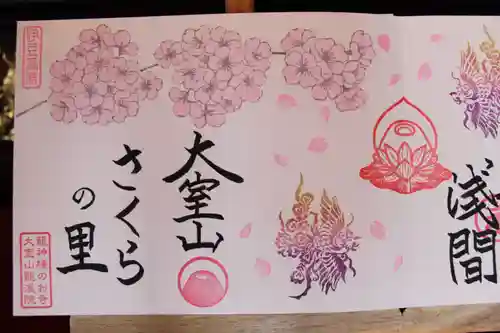 浅間
大室山
さくら
の里
龍神様のお寺
大室山龍渓院